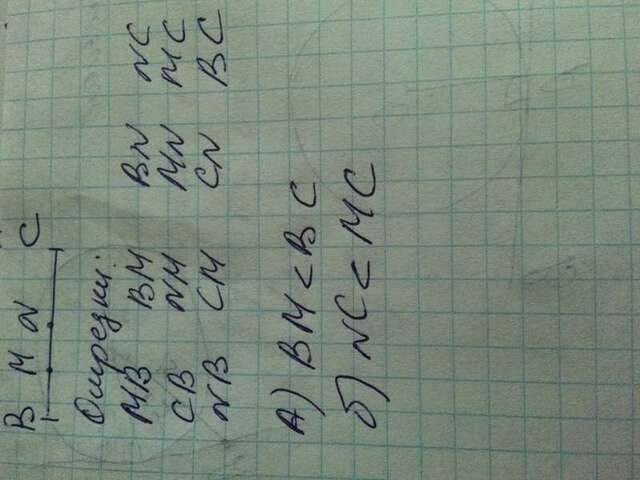 B M N C
Отрезки:
MB BM BN NC
CB NM MN MC
NB CM CN BC
А) BM < BC
б) NC < MC